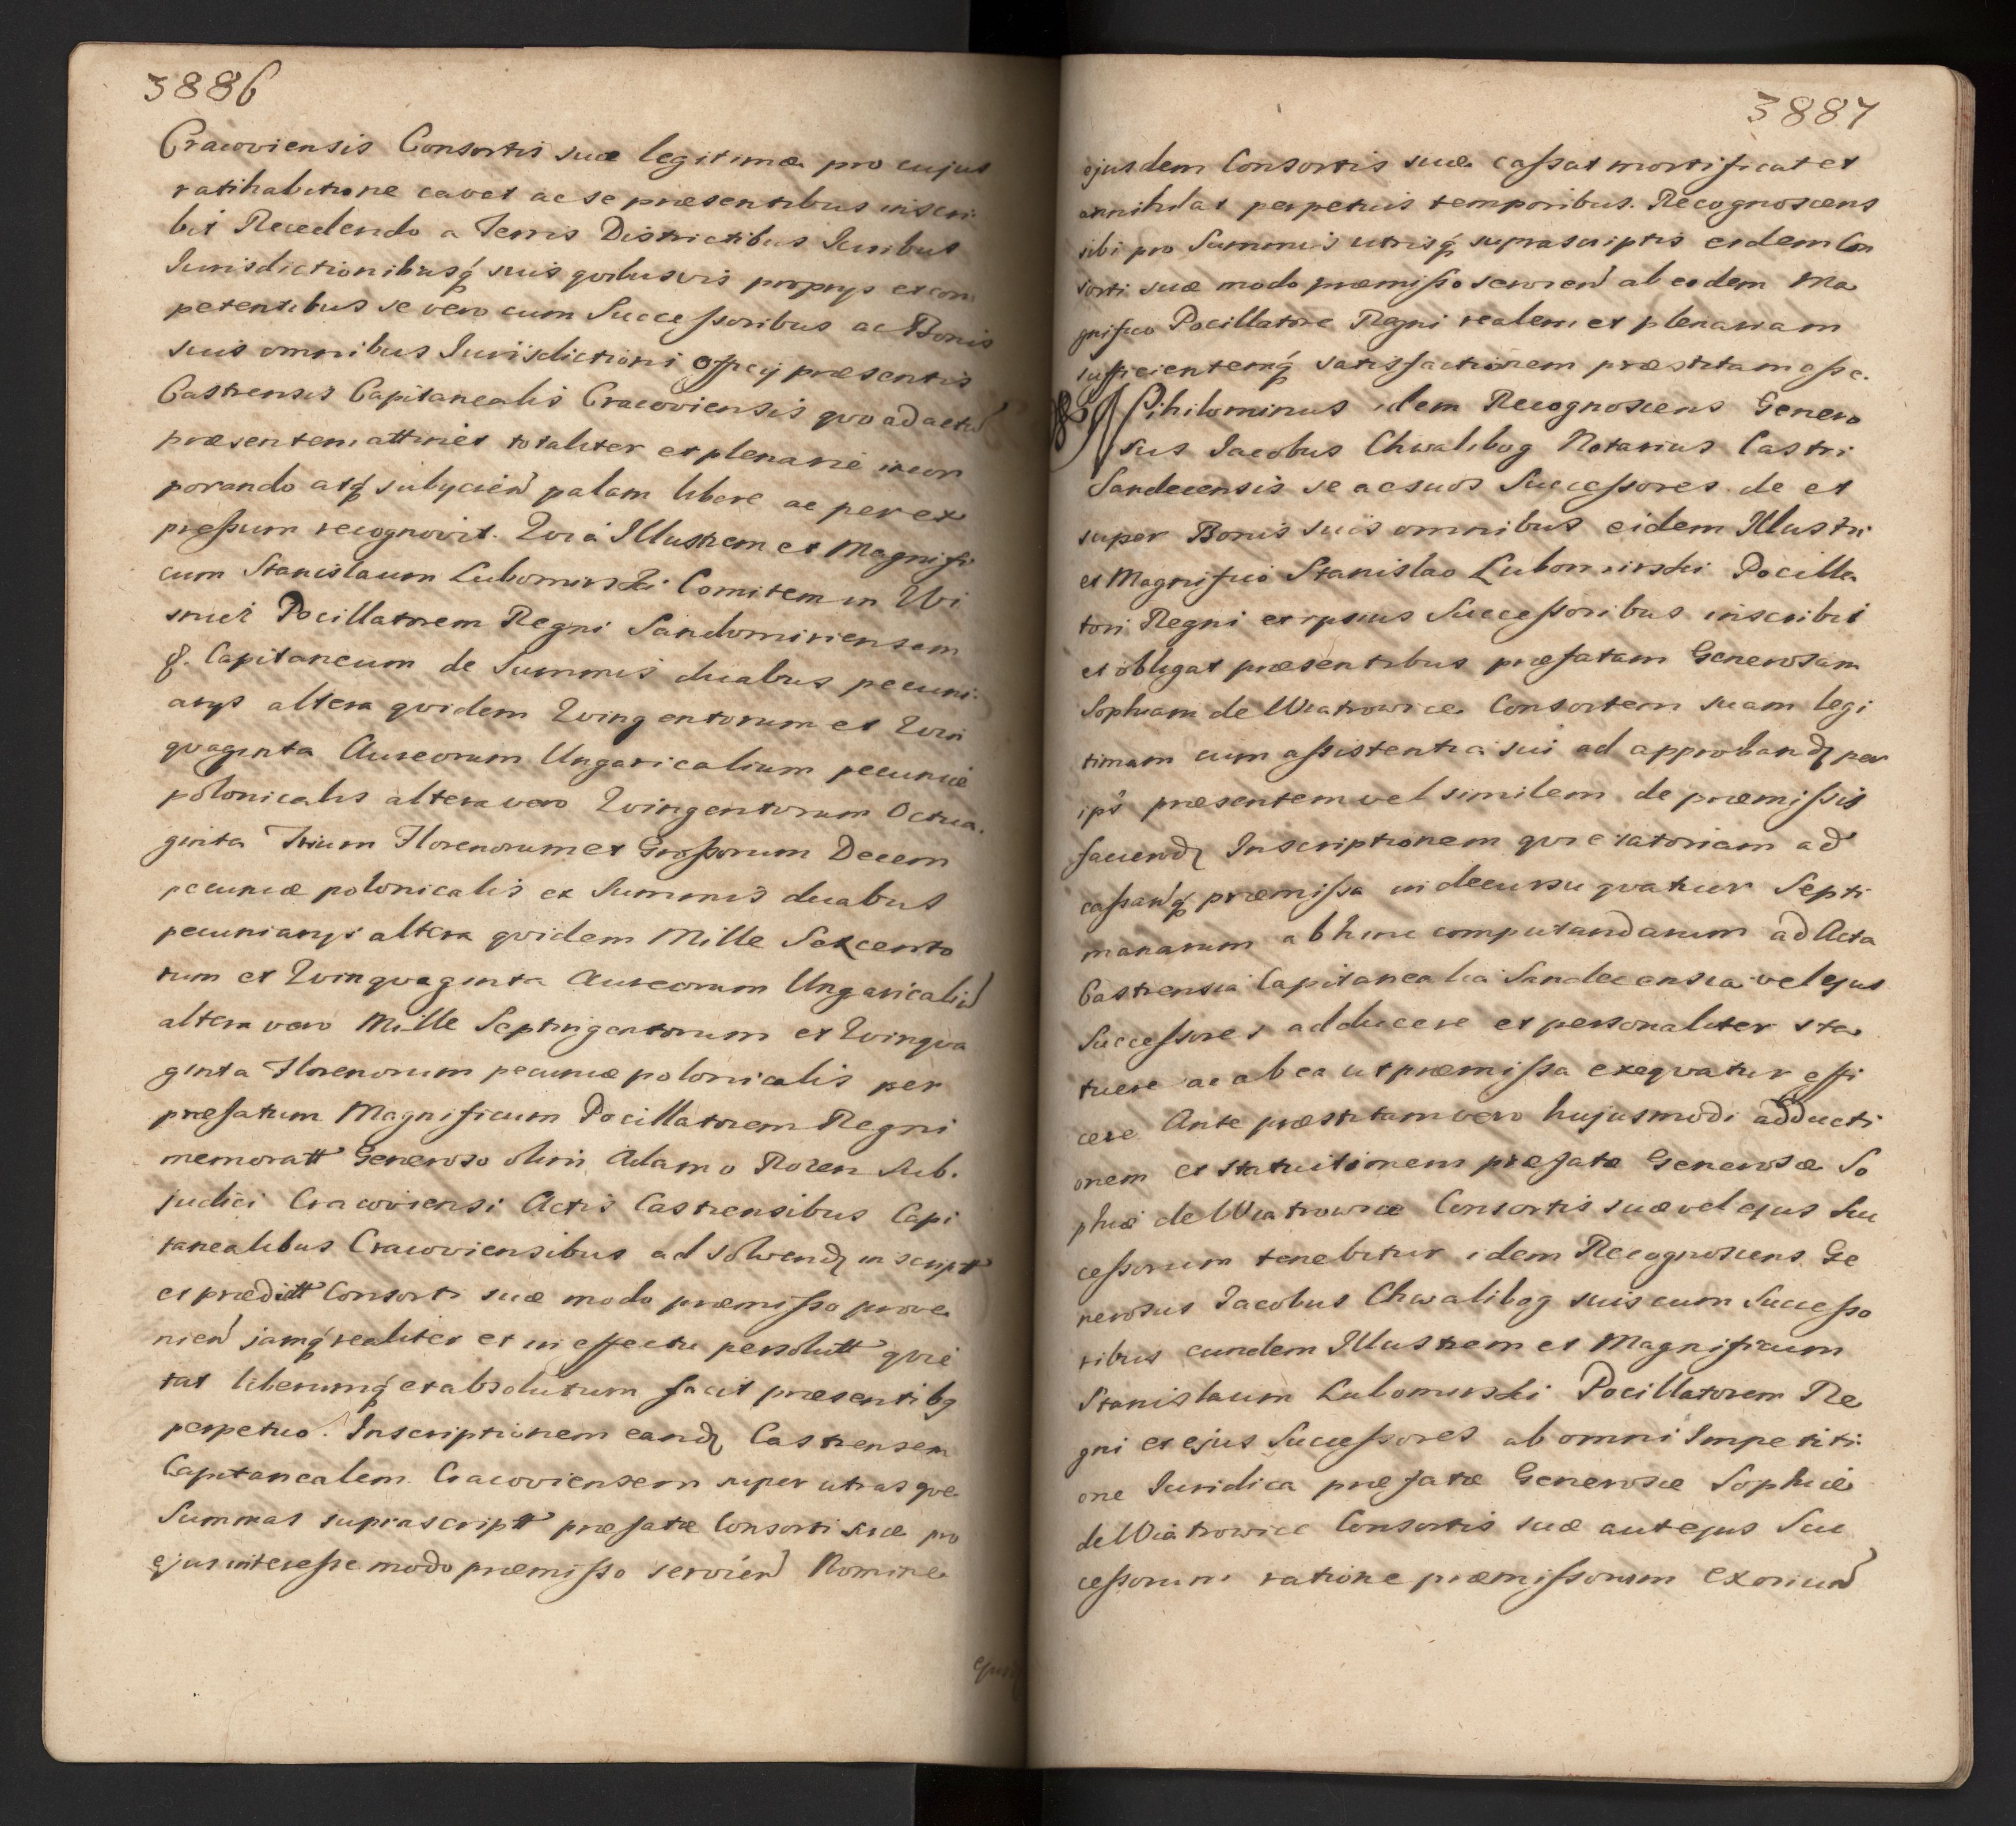 3886
Cracoviensis Consortis suæ legitimæ pro cujus
ratihabitione cavet ac se præsentibus inscri
bit Recedendo a Terris Districtibus Iuribus
Iurisdictionibusq́ suis qvibusvis proprys et com
petentibus se vero cum Successoribus ac Bonis
suis omnibus Iurisdictioni Officij præsentis
Castrensis Capitanealis Cracoviensis qvo ad actũ
præsentem attinet totaliter et plenarie incor
porando atq́ subycień palam libere ac per ex
pressum recognovit. Qvia Illustrem et Magnifi
cum Stanislaum Lubomirski Comitem in Wi
snicz Pocillatorem Regni Sandomiriensem
&. Capitaneum de Summis duabus pecuni.
arys altera qvidem Qvingentorum et Qvin
qvaginta Aureorum Ungaricalium pecuniæ
polonicalis altera vero Qvingentorum Octua.
ginta Trium Florenorum et Grossorum Decem
pecuniæ polonicalis ex Summis duabus
pecuniarys altera qvidem Mille Sexcento
rum et Qvinqvaginta Aureorum Ungaricaliũ
altera vero Mille Septingentorum et Qvinqva
ginta Florenorum pecuniæ polonicalis per
præfatum Magnificum Pocillatorem Regni
memoratt Generoso olim Adamo Rozen Sub.
judici Cracoviensi Actis Castrensibus Capi
tanealibus Cracoviensibus ad solvend in scriptt
et prædictt Consorti suæ modo præmisso prove
nień jamq́ realiter et in effectu persolutt qvie
tat liberumq́ et absolutum facit præsentibg
perpetuo. Inscriptionem eand Castrensem
Capitanealem Cracoviensem super utrasqve
Summas suprascriptt præfatæ Consorti suæ pro
ejus interesse modo præmisso servień Nomine
ejusd
3887
ejusdem Consortis suæ cassat mortificat et
annihilat perpetuis temporibus. Recognoscens
sibi pro Summis utrisq́ suprascriptis eidem Con
sorti suæ modo præmisso servień ab eodem Ma
gnifico Pocillatore Regni realem et plenariam
sufficientemq́ satisfactionem præstitam esse.
Nihilominus idem Recognoscens Genero
sus Iacobus Chwalibog Notarius Castri
Sandecensis se ac suos Successores de et
super Bonis suis omnibus eidem Illustri
et Magnifico Stanislao Lubomirski Pocilla
tori Regni et ipsius Successoribus inscribit
et obligat præsentibus præfatam Generosam
Sophiam de Wiatrowice Consortem suam legi
timam cum assistentia sui ad approband per
ips præsentem vel similem de præmissis
faciend Inscriptionem qvietatoriam ad
cassanq́ præmissa in decursu qvatuor Septi
manarum abhinc computandarum ad Acta
Castrensia Capitanealia Sandecensia vel ejus
Successores adducere et personaliter sta
tuere ac ab ea ut præmissa exeqvatur effi
cere Ante præstitam vero hujusmodi adducti
onem et statuitionem præfatæ Generosæ So
phiæ de Wiatrowice Consortis suæ vel ejus Suc
cessorum tenebitur idem Recognoscens Ge
nerosus Iacobus Chwalibog suis cum Successo
ribus eundem Illustrem et Magnificum
Stanislaum Lubomirski Pocillatorem Re
gni et ejus Successores ab omni Impetiti
one Iuridica præfatæ Generosæ Sophiæ
de Wiatrowice Consortis suæ aut ejus Suc
cessorum ratione præmissorum exoriuń